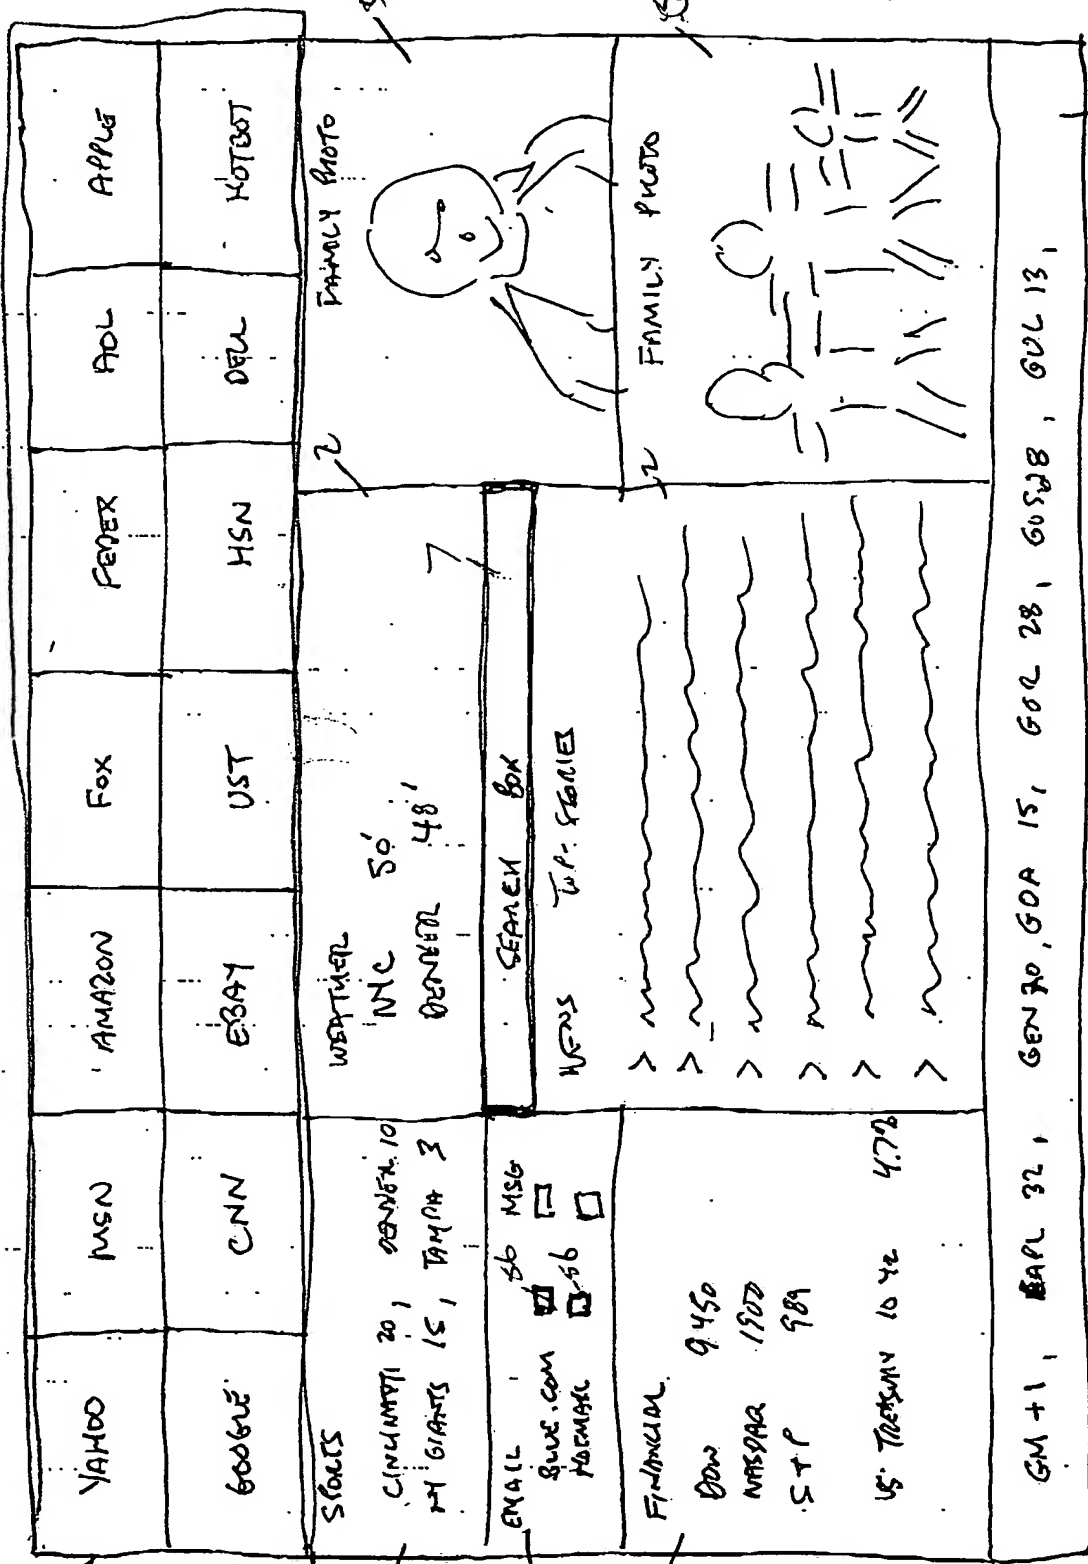 YAHOO MSN AMAZON FOX FEDEX AOL APPLE
GOOGLE CNN EBAY UST HSN DELL HOTBOT
SPORTS
CINCINATTI 20, DENVER 10
NY GIANTS 15, TAMPA 3
EMAIL 56 MSG
BLUE.COM
HOTMAIL 56
FINANCIAL
DOW 9450
NASDAQ 1900
S+P 989
US TREASURY 10 YR 4.7%
WEATHER
NYC 50'
DENVER 48'
SEARCH BOX
7
NEWS TOP STORIES
2
FAMILY PHOTO
2
FAMILY PHOTO
GM +1, AAPL 32, GEN 20, GOA 15, GOR 28, GOS 28, GUL 13,